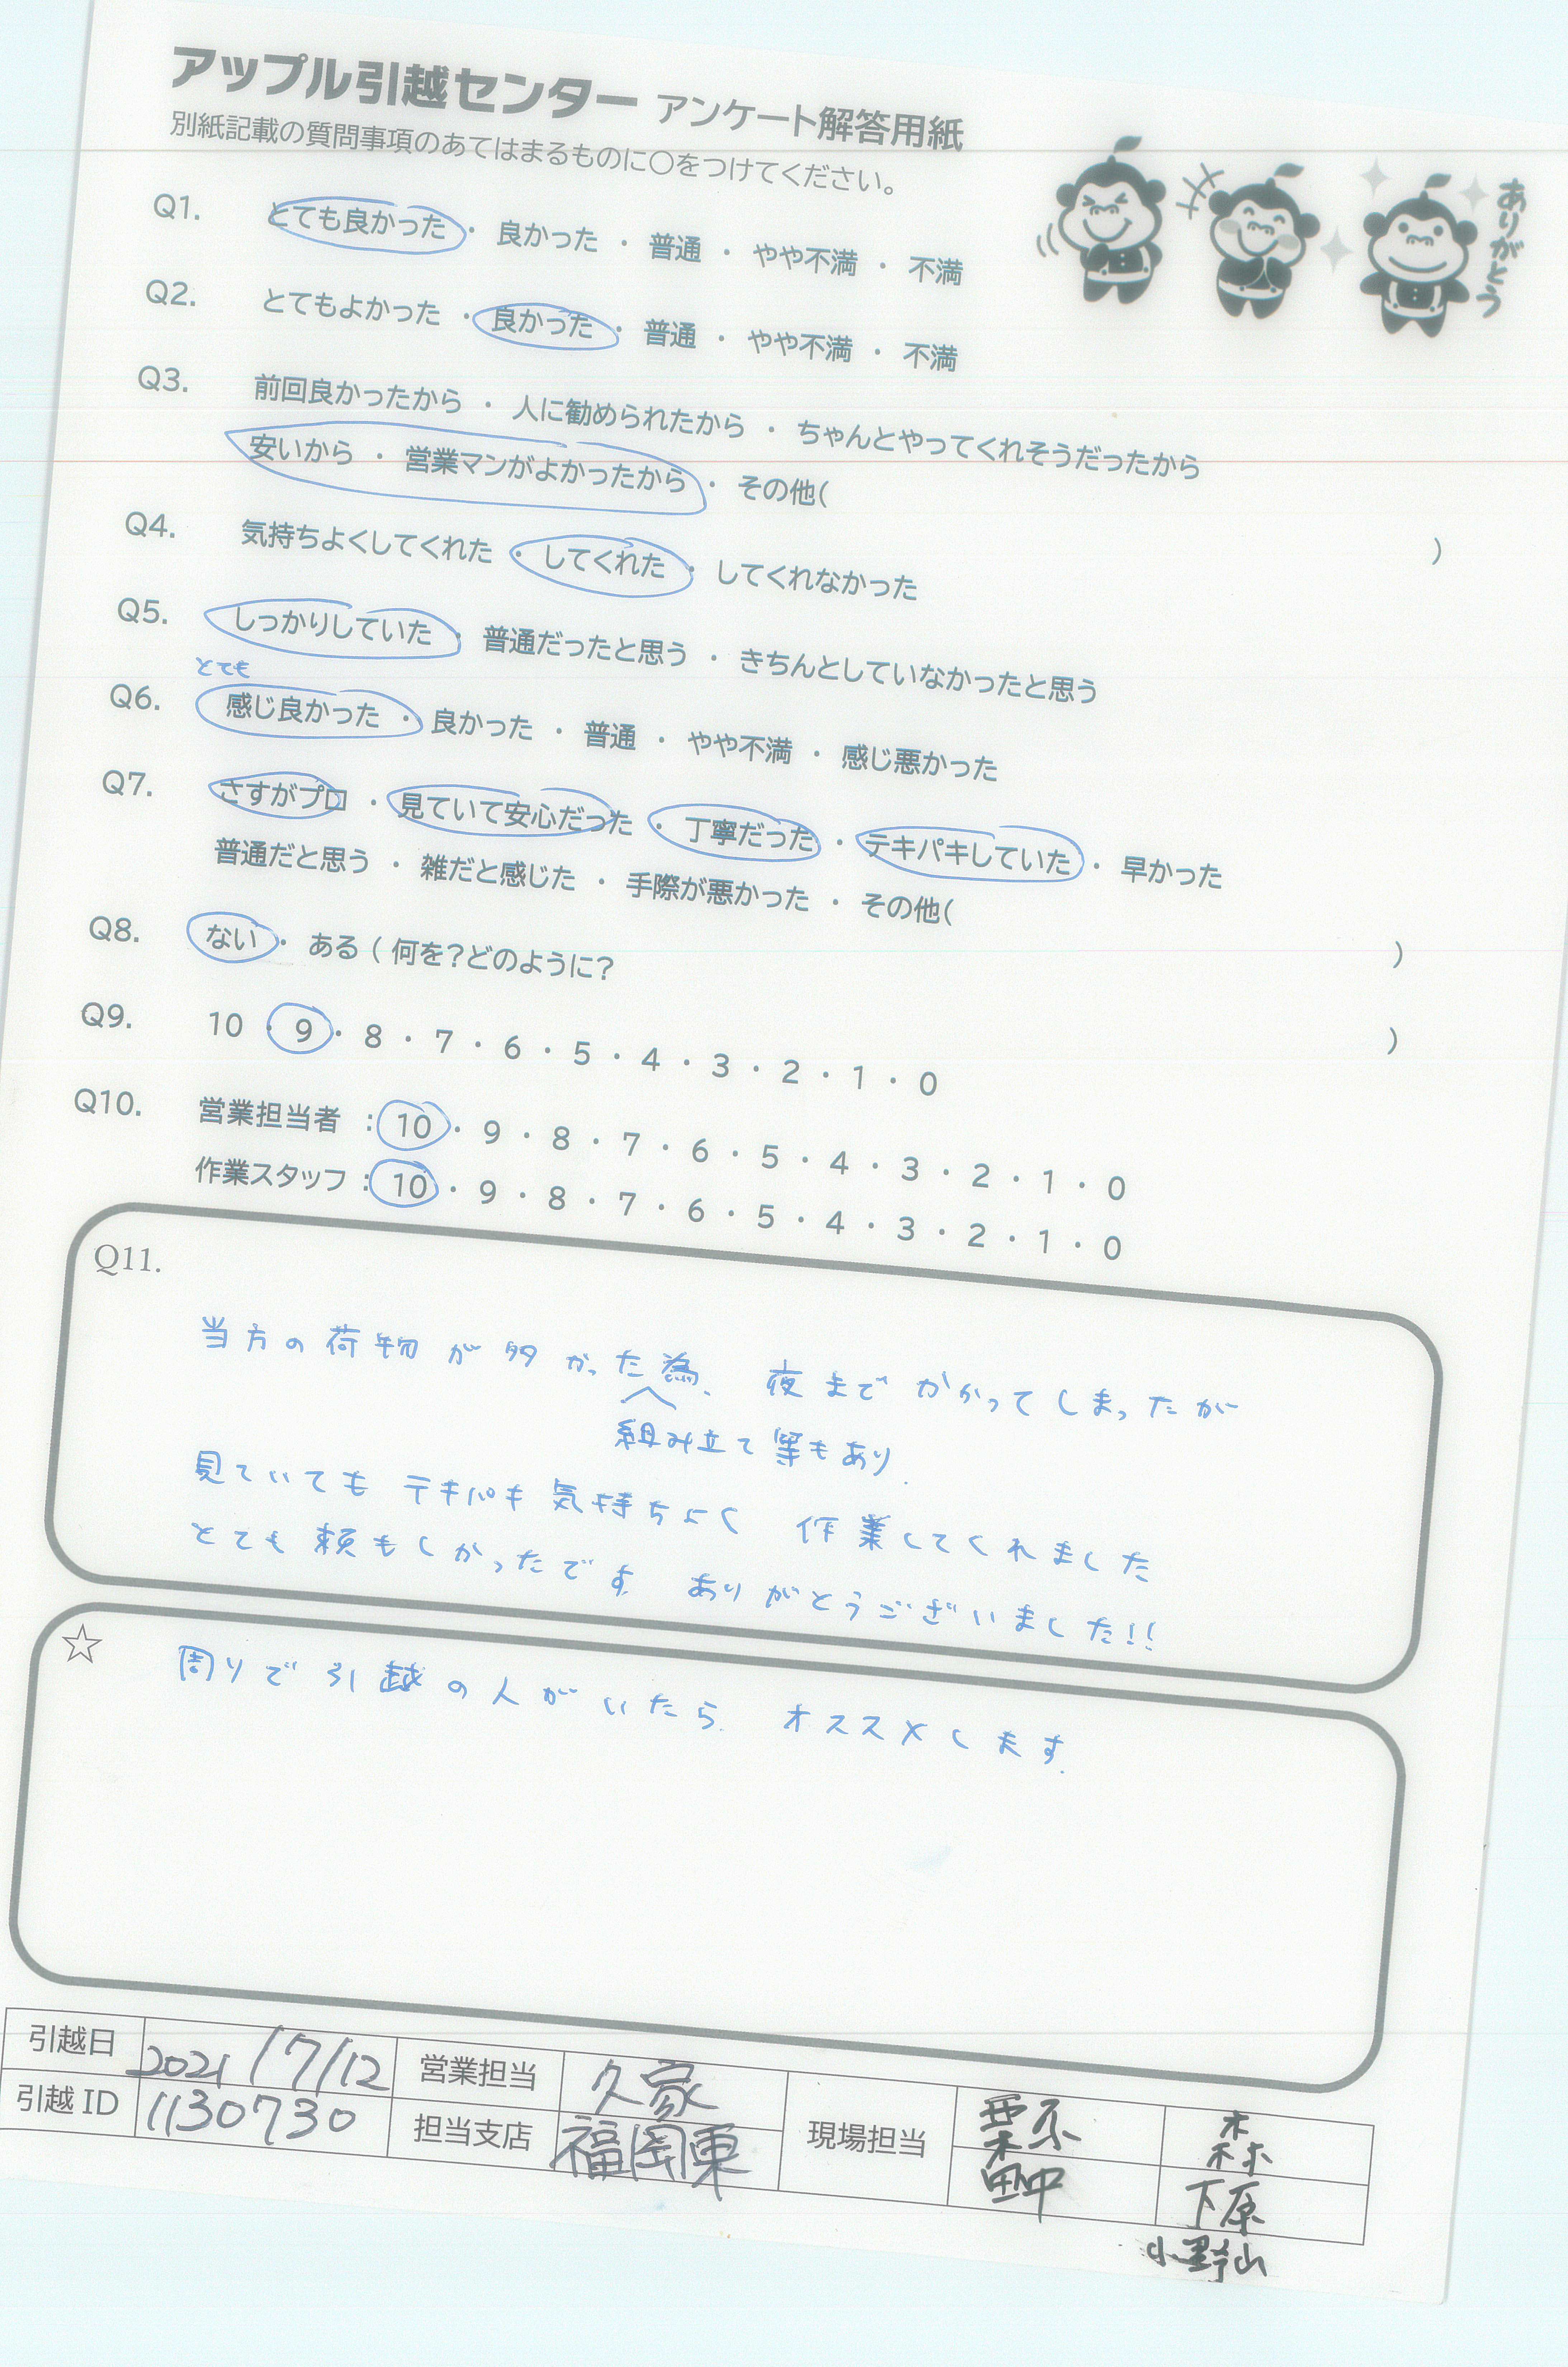 アップル引越センター アンケート解答用紙
別紙記載の質問事項のあてはまるものに○をつけてください。
ありがとう
Q1. とても良かった ・ 良かった ・ 普通 ・ やや不満 ・ 不満
Q2. とてもよかった ・ 良かった ・ 普通 ・ やや不満 ・ 不満
Q3. 前回良かったから ・ 人に勧められたから ・ ちゃんとやってくれそうだったから
安いから ・ 営業マンがよかったから ・ その他( )
Q4. 気持ちよくしてくれた ・ してくれた ・ してくれなかった
Q5. しっかりしていた ・ 普通だったと思う ・ きちんとしていなかったと思う
とても
Q6. 感じ良かった ・ 良かった ・ 普通 ・ やや不満 ・ 感じ悪かった
Q7. さすがプロ ・ 見ていて安心だった ・ 丁寧だった ・ テキパキしていた ・ 早かった
普通だと思う ・ 雑だと感じた ・ 手際が悪かった ・ その他( )
Q8. ない ・ ある ( 何を?どのように? )
Q9. 10 ・ 9 ・ 8 ・ 7 ・ 6 ・ 5 ・ 4 ・ 3 ・ 2 ・ 1 ・ 0
Q10. 営業担当者 : 10 ・ 9 ・ 8 ・ 7 ・ 6 ・ 5 ・ 4 ・ 3 ・ 2 ・ 1 ・ 0
作業スタッフ : 10 ・ 9 ・ 8 ・ 7 ・ 6 ・ 5 ・ 4 ・ 3 ・ 2 ・ 1 ・ 0
Q11.
当方の荷物が多かった為、夜までかかってしまったが
組み立て等もあり、
見ていても テキパキ気持ちよく 作業してくれました
とても頼もしかったです。ありがとうございました!!
☆ 周りで引越の人がいたら、オススメします。
引越日 2021/7/12 営業担当 久家
引越 ID 1130730 担当支店 福岡東
現場担当 栗原 森
田中 下原
小野山